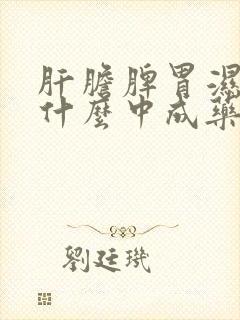 肝膽脾胃濕
什麼中成藥
劉廷璣